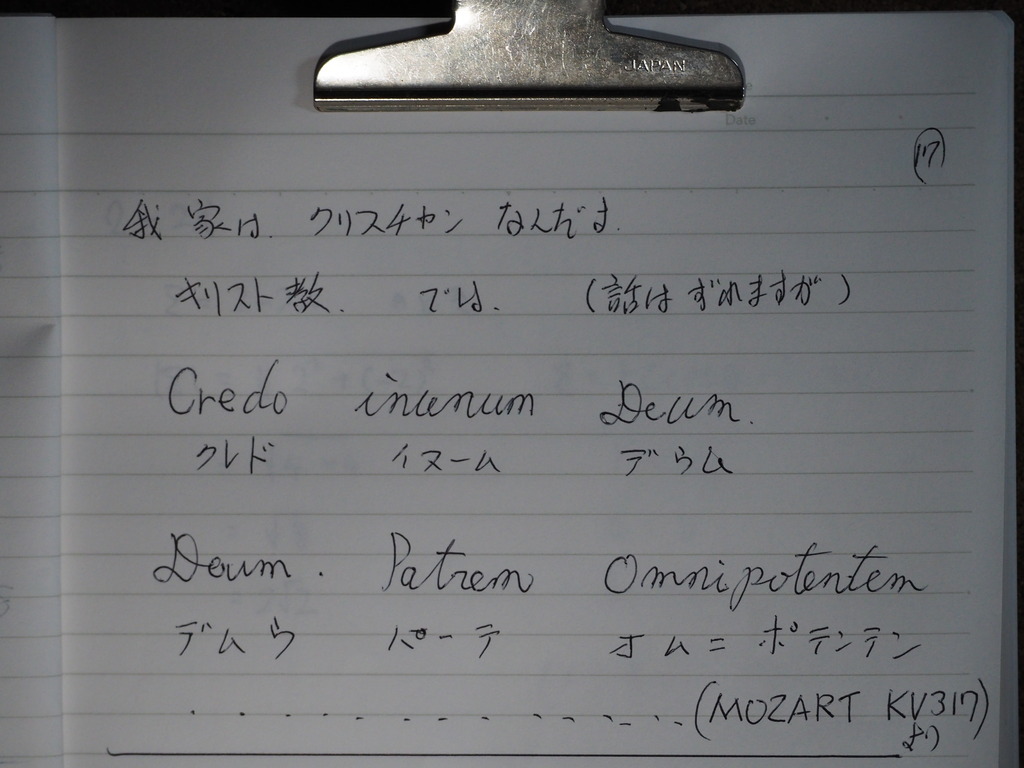 JAPAN
Date
(17)
我家は、クリスチャン なんだよ。
キリスト教、 では、 (話はずれますが)
Credo inunum Deum.
クレド イヌーム デウム
Deum. Patrem Omnipotentem
デムウ パーテ オムニポテンテン
. . . . . . . . . . . . . (MOZART KV317)
より